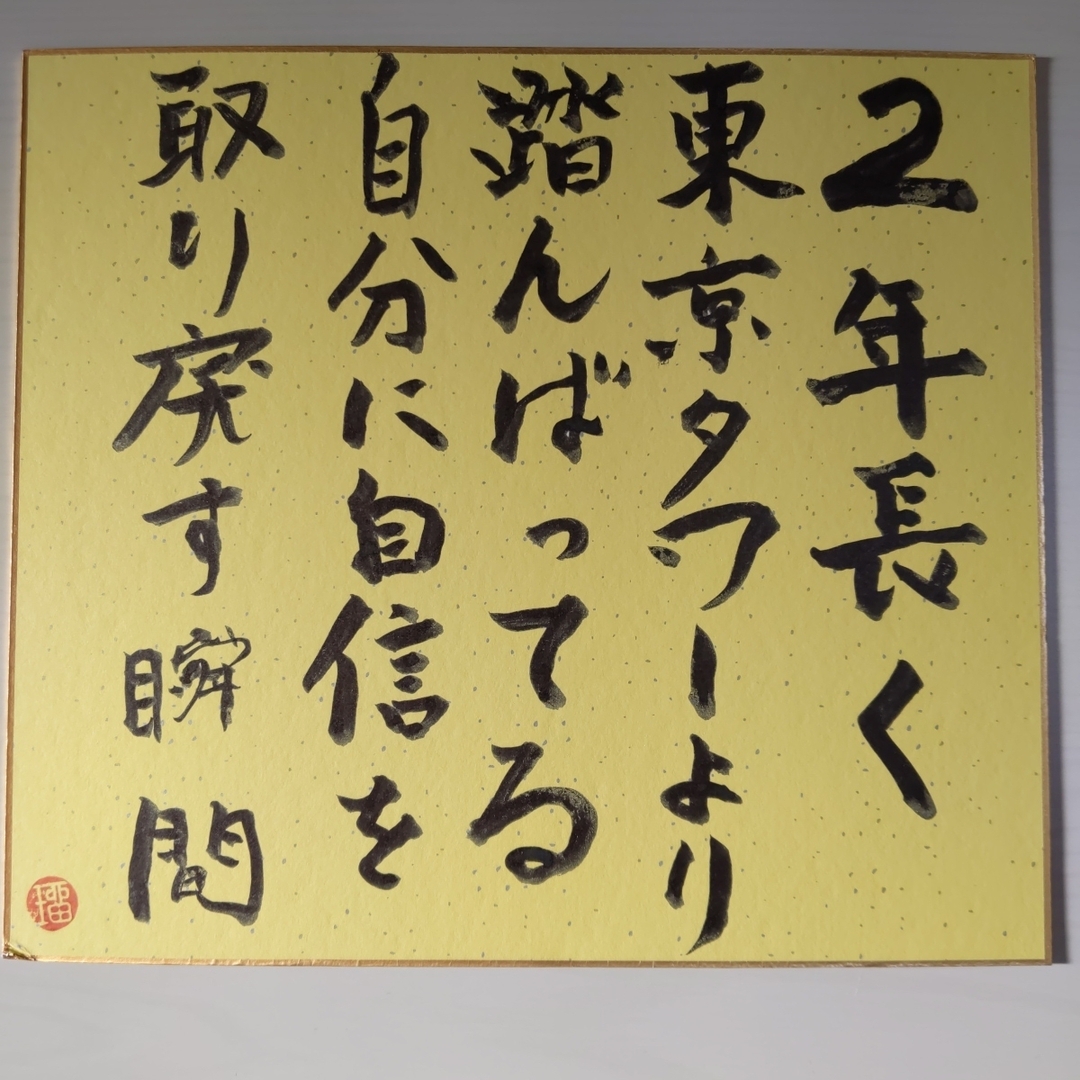 2年長く
東京タワーより
踏んばってる
自分に自信を
取り戻す瞬間